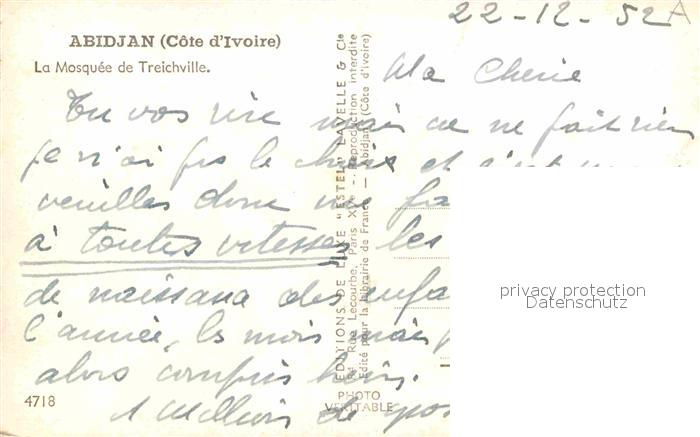 22-12-52
ABIDJAN (Côte d'Ivoire)
La Mosquée de Treichville.
Ma Cherie
Tu vas rire mais ça ne fait rien
je n'ai pas le choix et c'est
veuilles donc me fa
à toutes vitesses les
de naissance des enfa
l'année, les mois mais
alors compris hein.
1 Million de
4718
EDITIONS DE LUXE "ESTEL" LAVELLE & Cie
Rue Lecourbe, Paris XVe - Reproduction interdite
Edité pour la Librairie de France — Abidjan (Côte d'Ivoire)
PHOTO
VERITABLE
privacy protection
Datenschutz